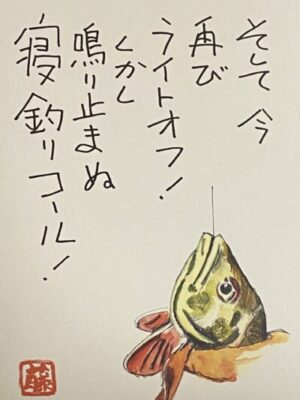 そして 今
再び
ライトオフ!
しかし
鳴り止まぬ
寝釣りコール!
藤